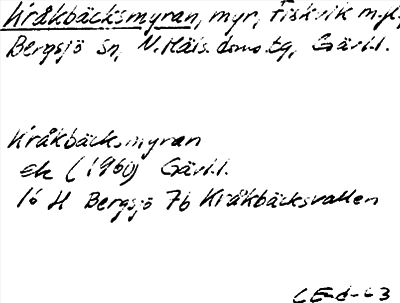 Kråkbäcksmyran, myr, Fiskvik m.fl,
Bergsjö sn, N. Häls. doms.bg, Gävl.l.
Kråkbäcksmyran
ek (1960) Gävl.l.
16 H Bergsjö 7b Kråkbäcksvallen